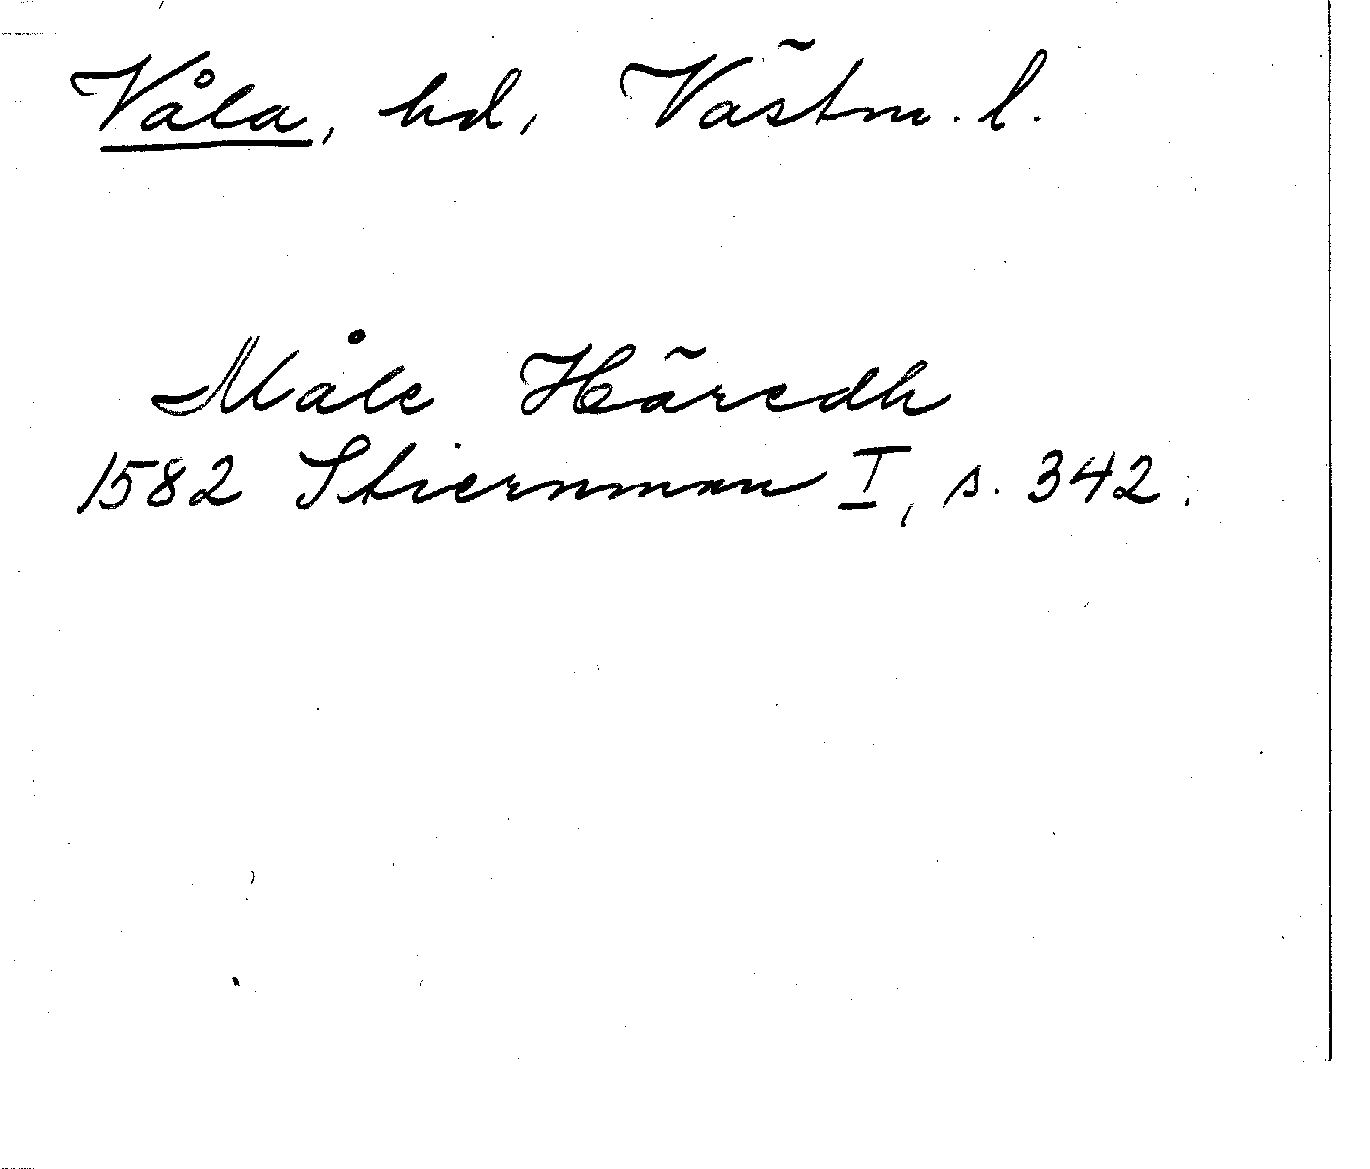 Våla, hd, Västm. l.
Måle Häredh
1582 Stiernman I, s. 342.